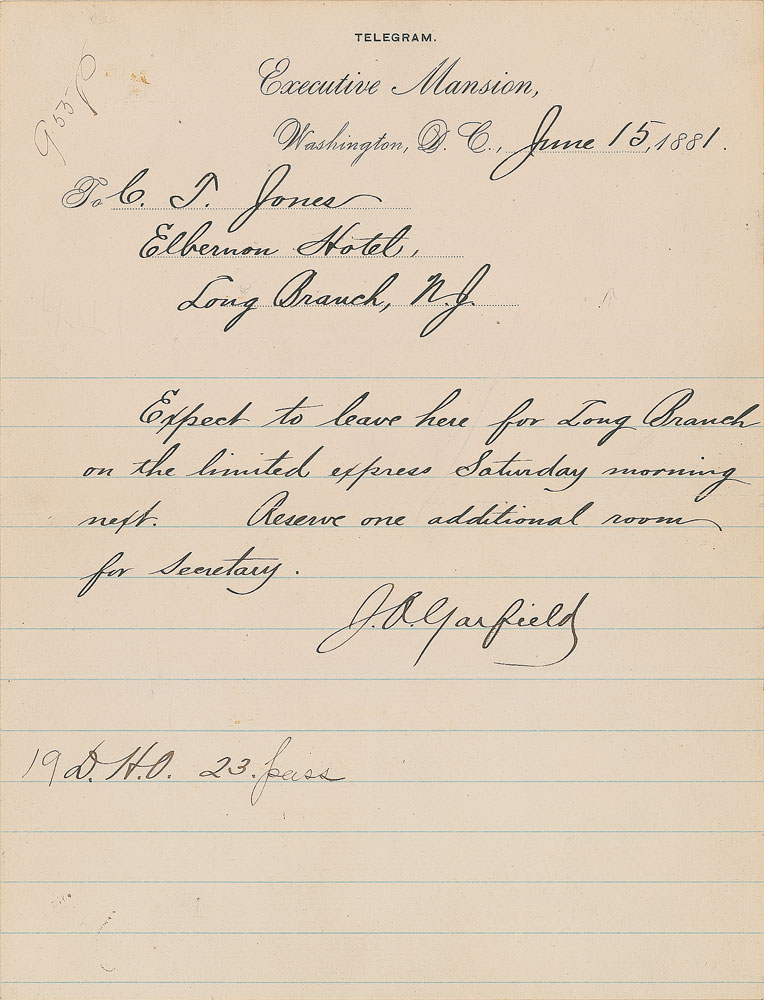 TELEGRAM.
Executive Mansion,
955P
Washington, D. C., June 15, 1881.
To C. T. Jones
Elbernon Hotel,
Long Branch, N.J.
Expect to leave here for Long Branch
on the limited express Saturday morning
next. Reserve one additional room
for Secretary.
J.A. Garfield
19 D.H.O. 23. pass